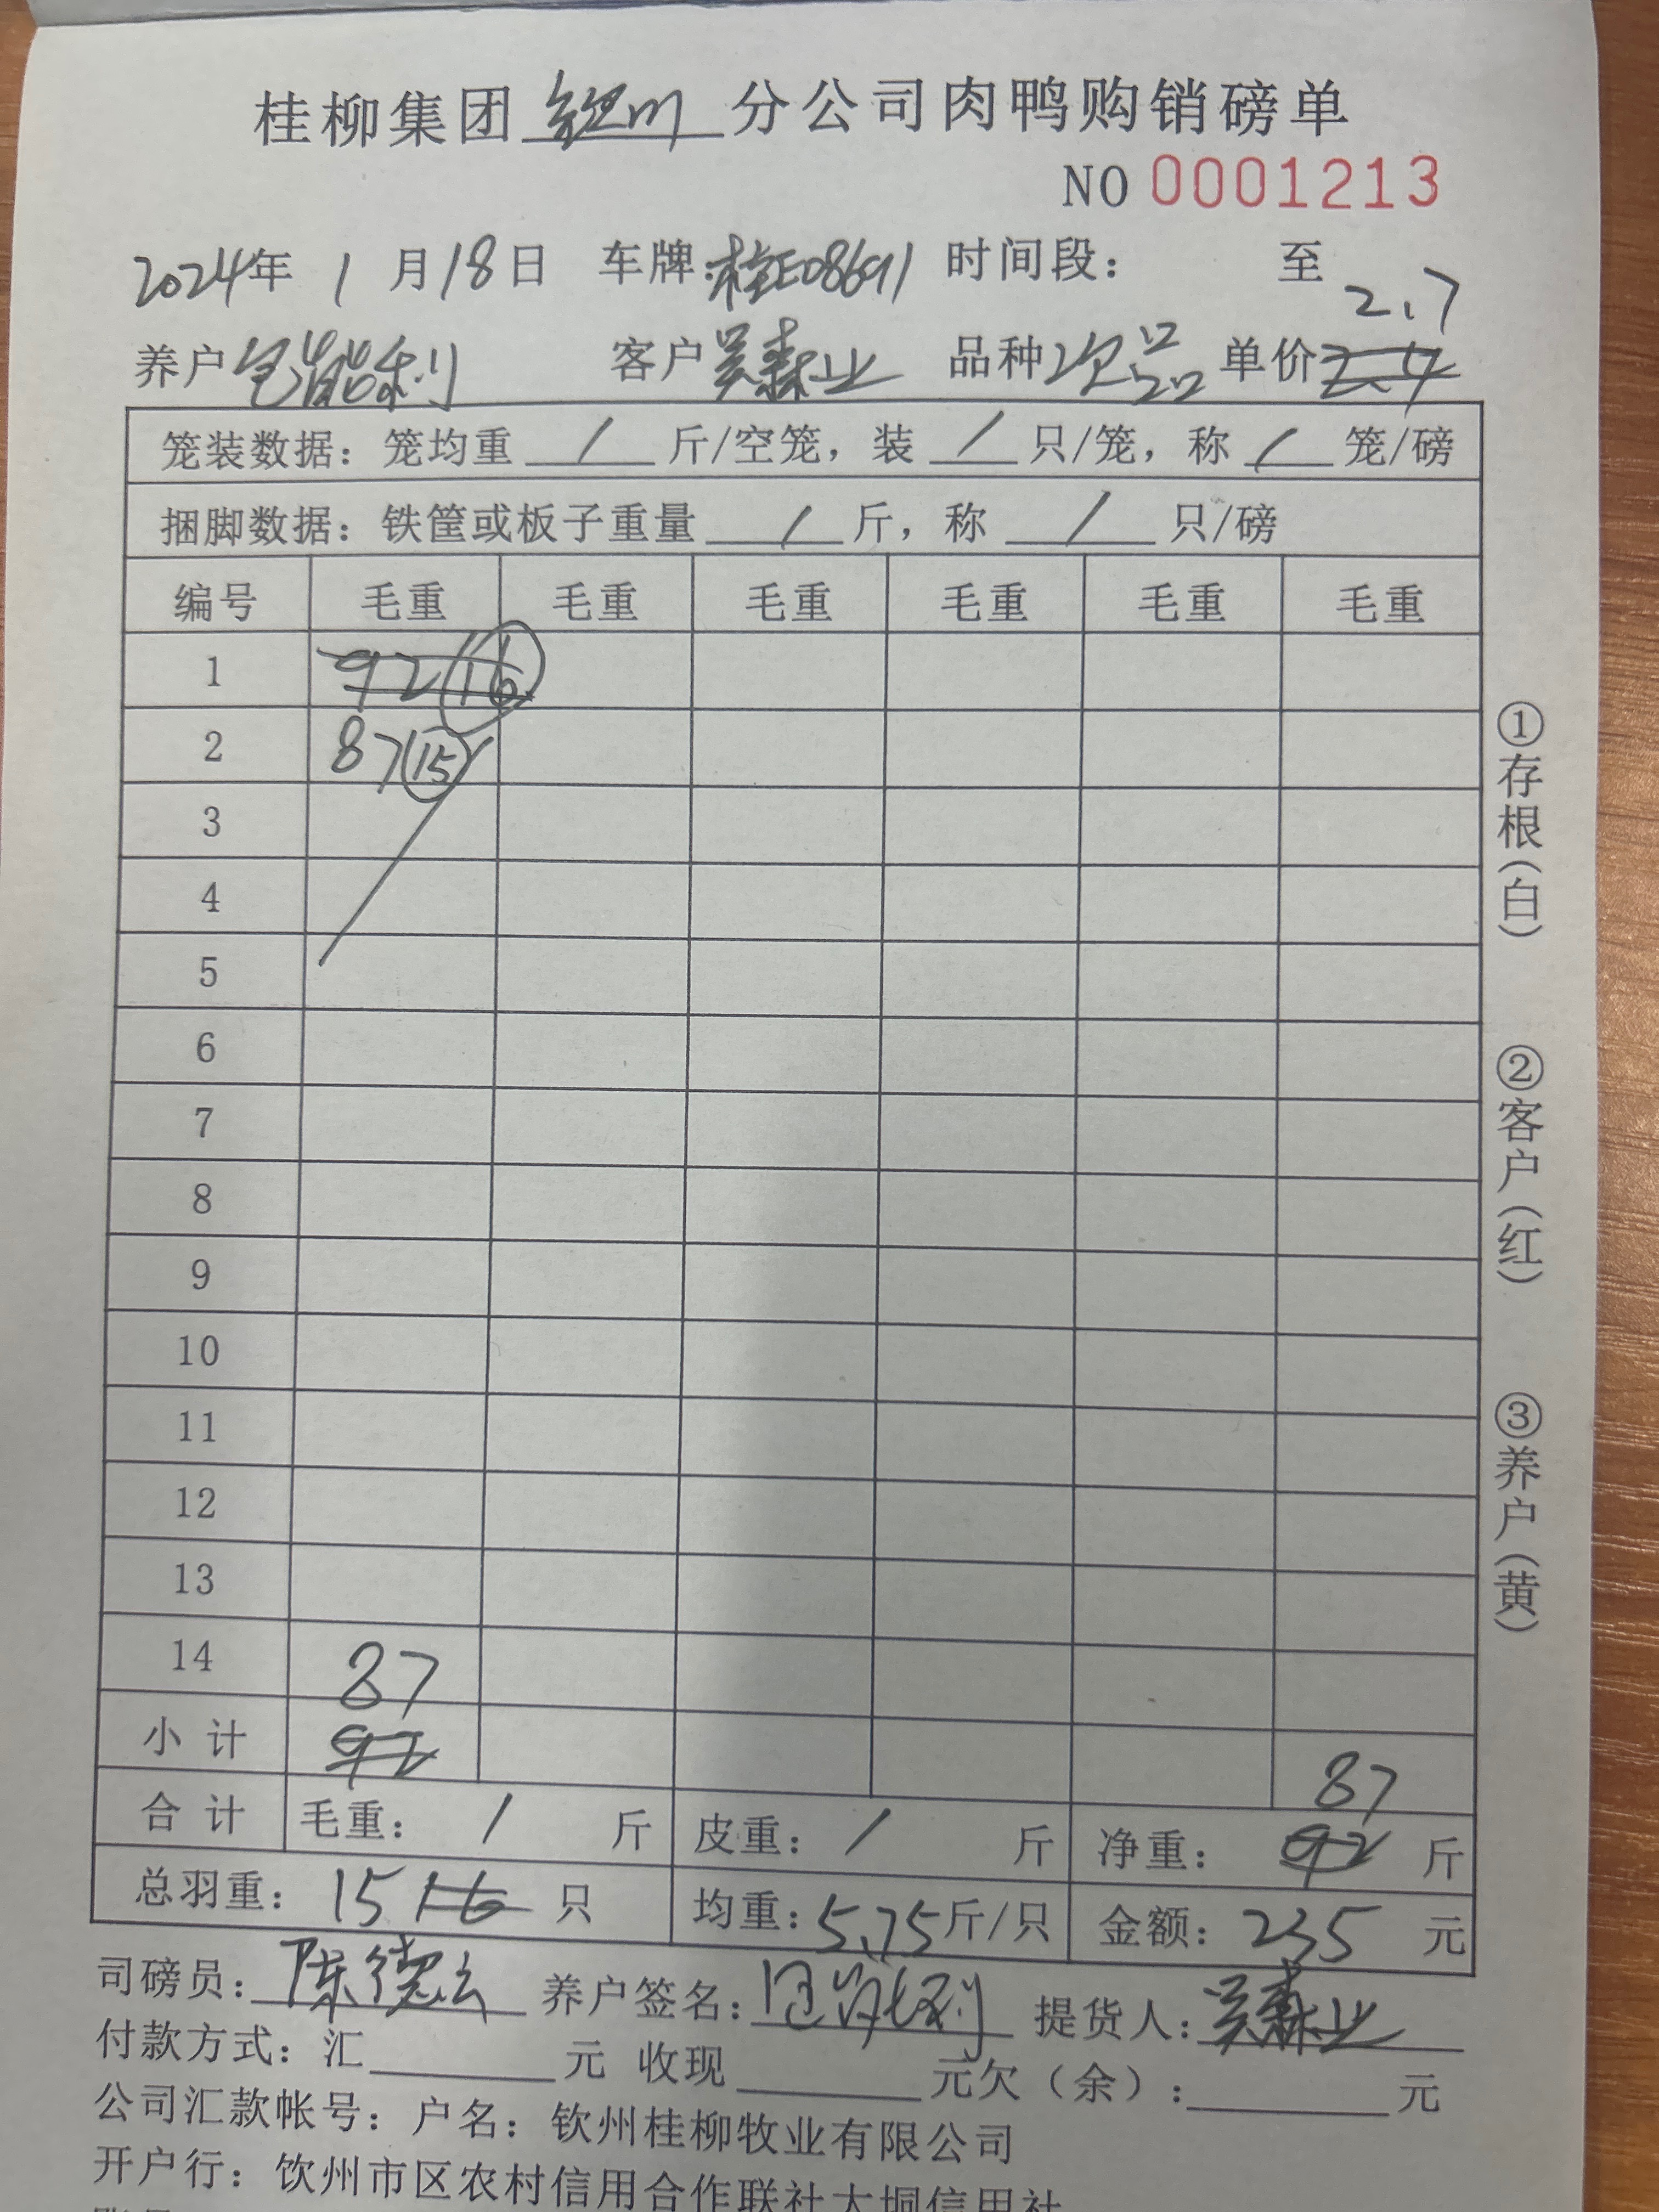 桂柳集团 钦州 分公司肉鸭购销磅单
NO 0001213
2024年 1 月18日 车牌:桂E08691 时间段: 至
2.7
养户 客户 吴森业 品种 次品 单价 2.4
笼装数据: 笼均重 / 斤/空笼, 装 / 只/笼, 称 / 笼/磅
捆脚数据: 铁筐或板子重量 / 斤, 称 / 只/磅
编号 毛重 毛重 毛重 毛重 毛重 毛重
1 92 16
2 87 15
3
4
5
6
7
8
9
10
11
12
13
14
87
小 计 92
87
合 计 毛重: / 斤 皮重: / 斤 净重: 92 斤
总羽重: 15 16 只 均重: 5.75 斤/只 金额: 235 元
司磅员: 陈德 养户签名: 提货人: 吴森业
付款方式: 汇 元 收现 元欠(余): 元
公司汇款帐号: 户名: 钦州桂柳牧业有限公司
开户行: 钦州市区农村信用合作联社大垌信用社
①存根(白)
②客户(红)
③养户(黄)